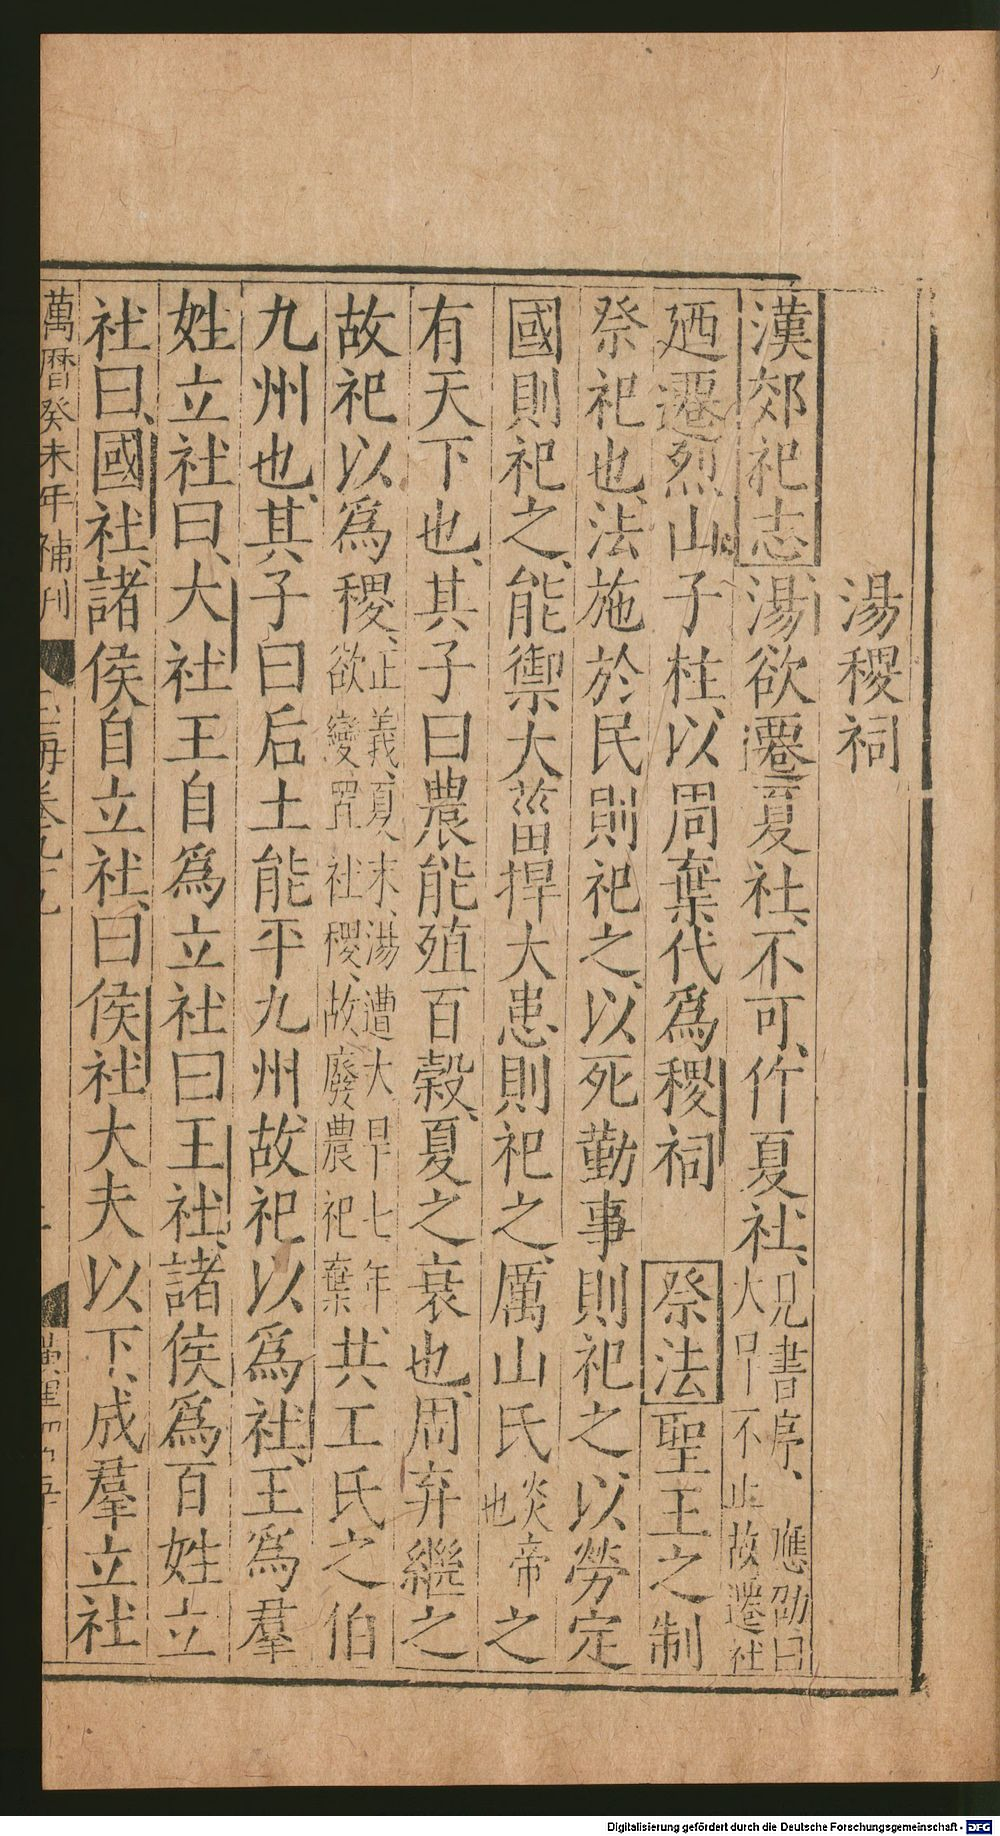 湯稷祠
漢郊祀志湯欲遷夏社、不可、作夏社、見書序、應劭曰大旱不止故遷社
廼遷烈山子柱、以周棄代爲稷祠 祭法聖王之制
祭祀也、法施於民則祀之、以死勤事則祀之以勞定
國則祀之、能禦大菑捍大患則祀之、厲山氏炎帝也之
有天下也、其子曰農能殖百穀、夏之衰也、周弃繼之
故祀以爲稷、正義夏末湯遭大旱七年欲變置社稷、故廢農祀棄共工氏之伯
九州也、其子曰后土能平九州、故祀以爲社、王爲羣
姓立社曰、大社王自爲立社曰王社、諸侯爲百姓立
社曰、國社、諸侯自立社、曰侯社大夫以下、成羣立社
萬曆癸未年補刊
Digitalisierung gefördert durch die Deutsche Forschungsgemeinschaft - DFG